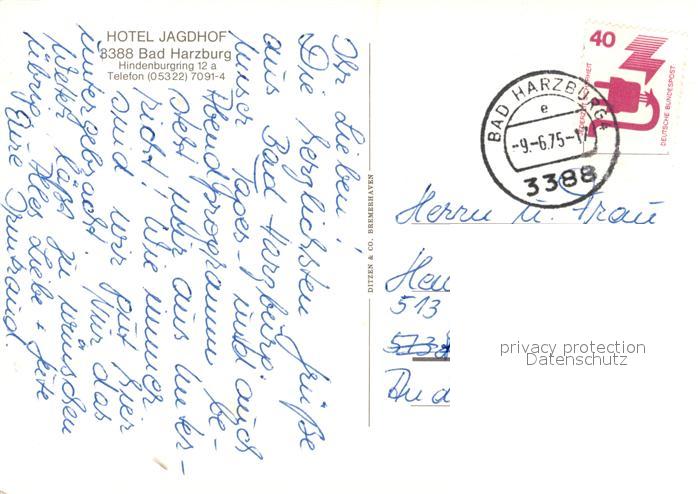 HOTEL JAGDHOF
3388 Bad Harzburg
Hindenburgring 12 a
Telefon (05322) 7091-4
Ihr Lieben!
Die herzlichsten Grüße
aus Bad Harzburg.
Unser Tages- und auch
Abendprogramm be-
steht nur aus Unter-
richt! Wie immer
sind wir gut hier
untergebracht. Nur das
Wetter läßt zu wünschen
übrig. Alles Liebe + Gute
Eure Irmtraud.
DITZEN & CO. BREMERHAVEN
40
DEUTSCHE BUNDESPOST
BAD HARZBURG 1
e
-9.-6.75-17
3388
Herrn u. Frau
Heu
513
5138
privacy protection
Datenschutz